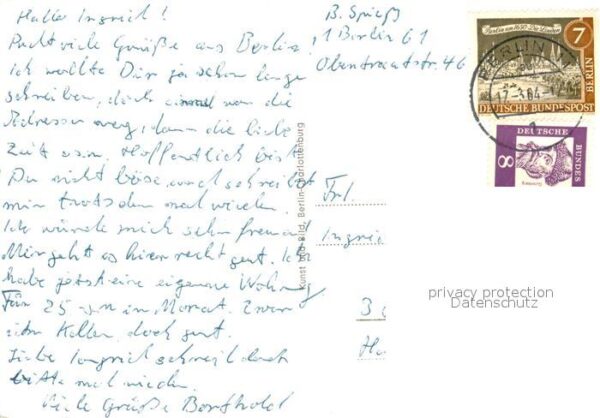 Hallo Ingrid!
Recht viele Grüße aus Berlin.
Ich wollte Dir ja schon lange
schreiben, doch einmal war die
Adresse weg, dann die liebe
Zeit usw. Hoffentlich bist
Du nicht böse, und schreibst
mir trotzdem mal wieder.
Ich würde mich sehr freuen!
Mir geht es hier recht gut. Ich
habe jetzt eine eigene Wohnung
Für 25 im Monat. Zwar
im Keller, doch gut.
Liebe Ingrid schreib doch
bitte mal wieder.
Viele Grüße Berthold
B. Spieß
1 Berlin 61
Obentrautstr. 46
Kunst und Bild, Berlin-Charlottenburg
Frl.
Ingrid
Berlin um 1650 · Die Linden
7
BERLIN
DEUTSCHE BUNDESPOST
BERLIN
17.-3.64.-17
DEUTSCHE
BUNDES
8
privacy protection
Datenschutz